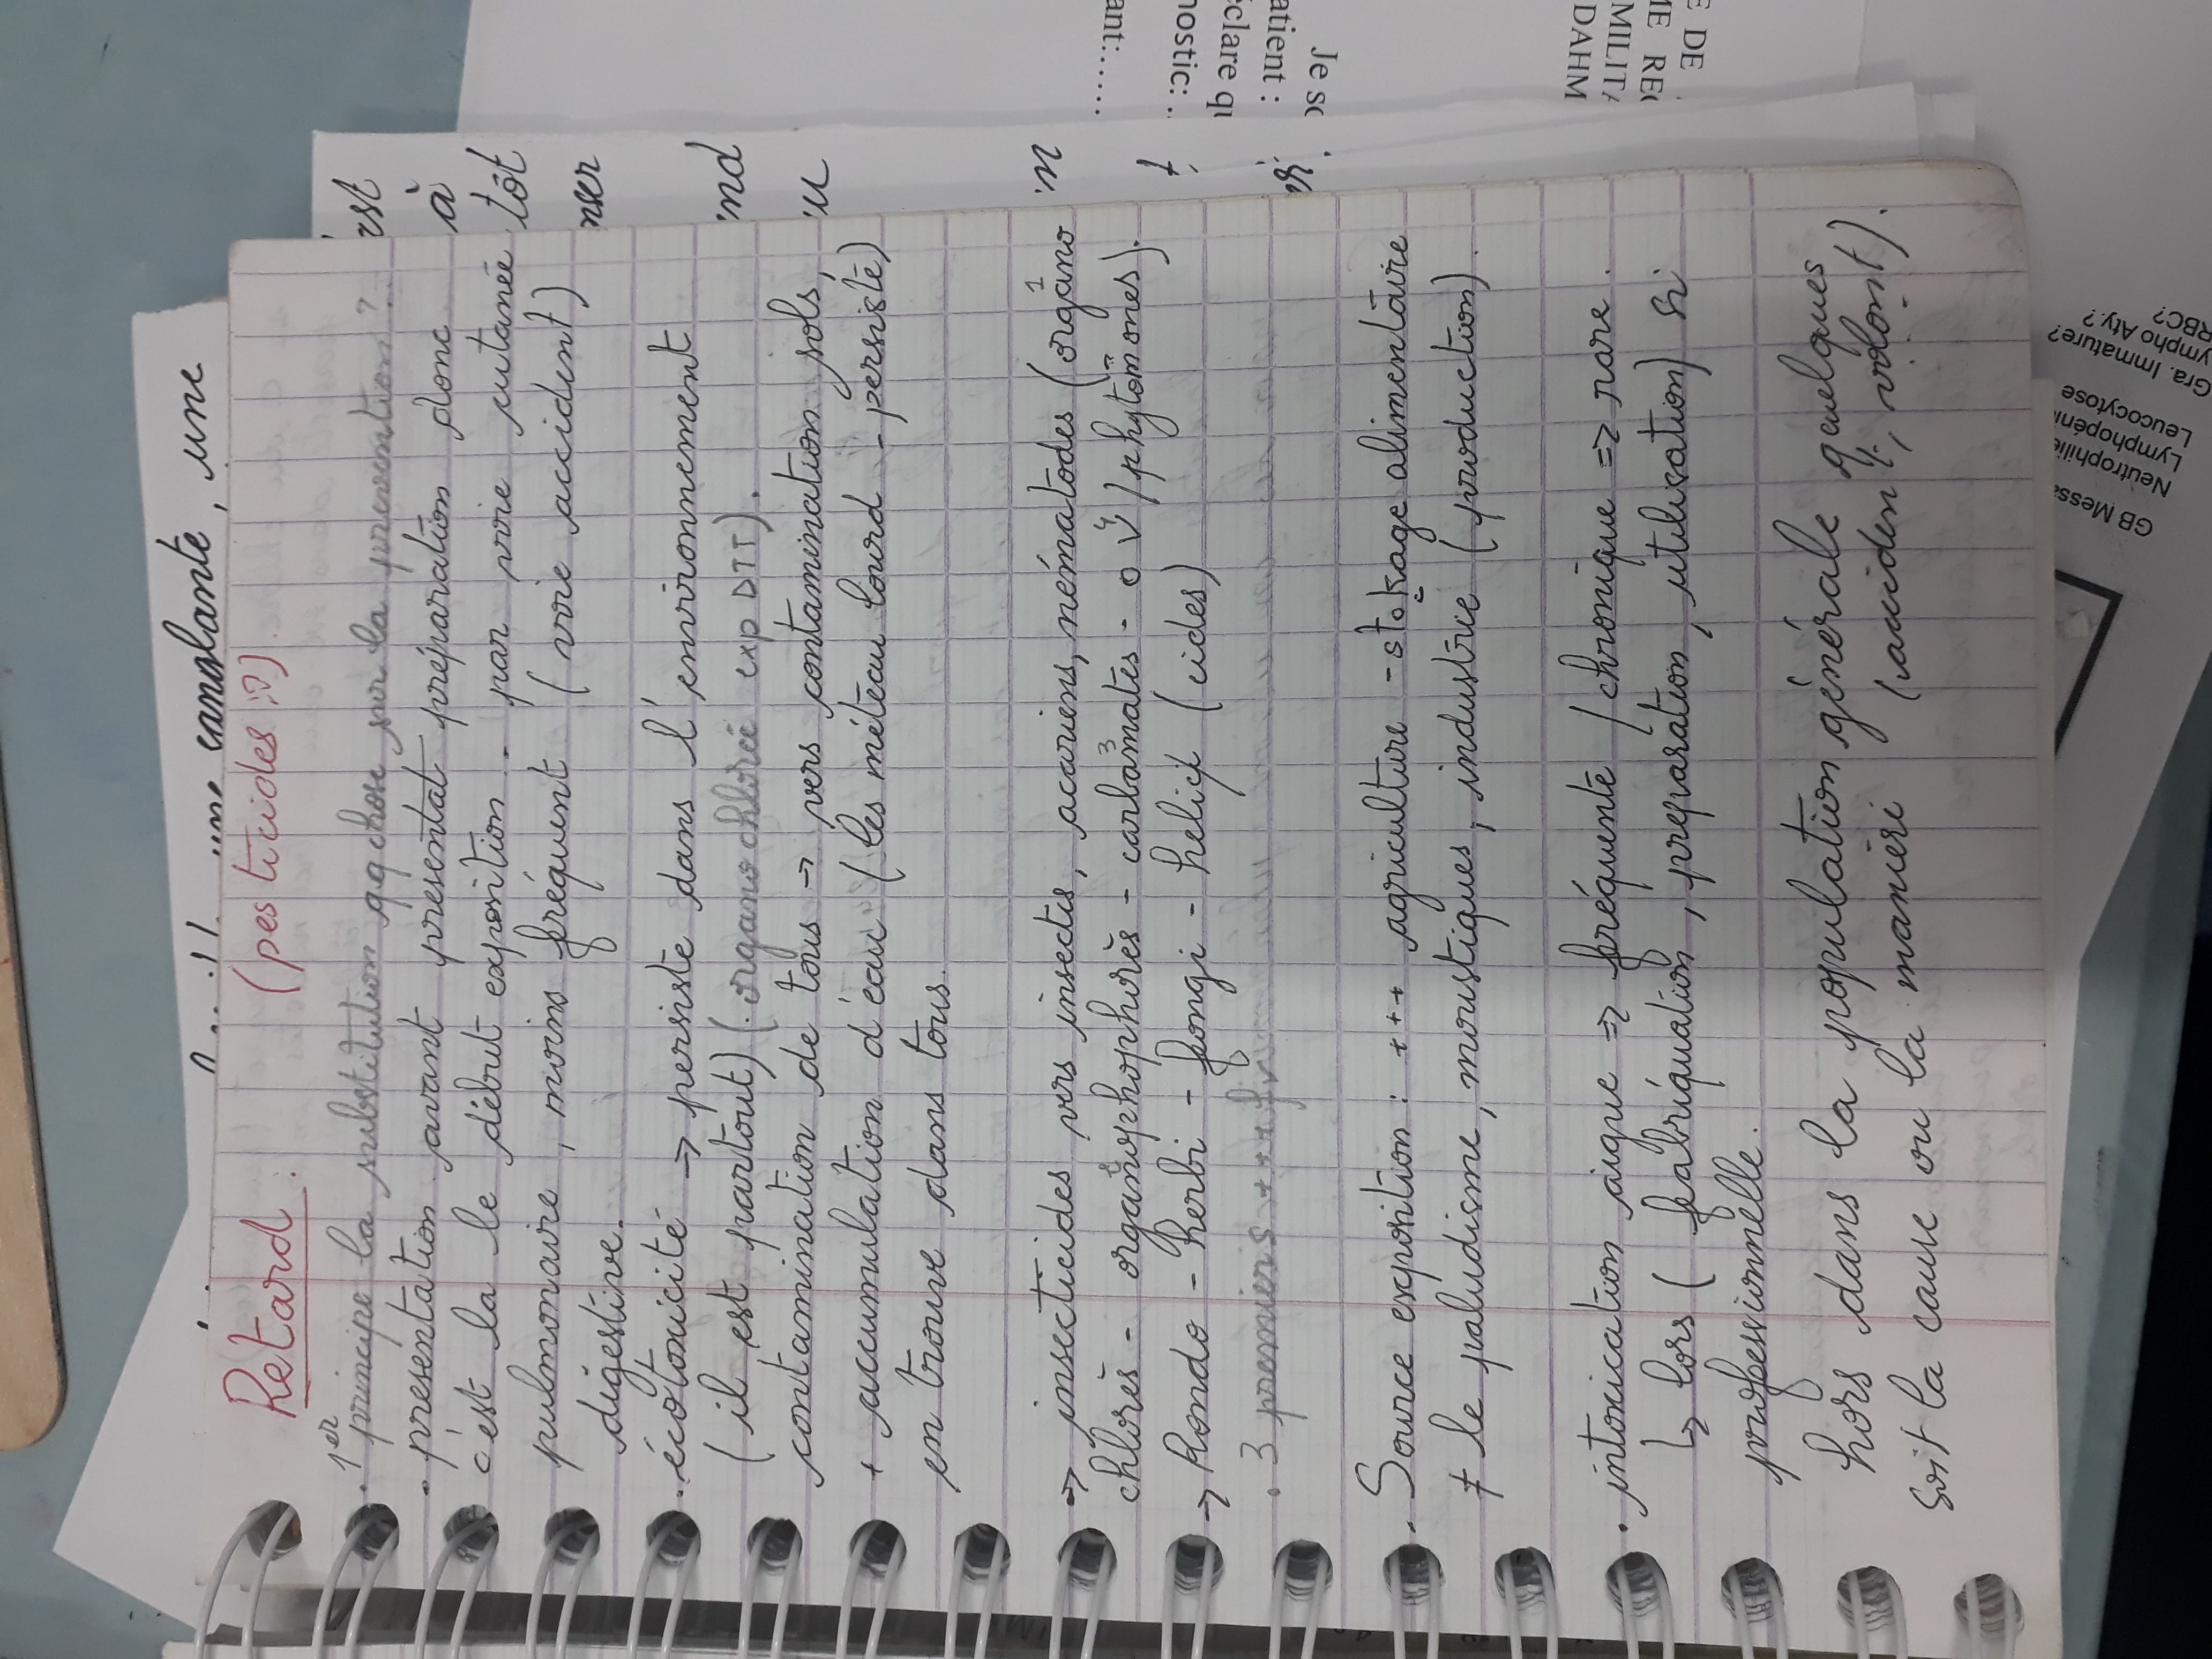 Retard : (pesticides ;?)
. 1er principe la substitution qqchose sur la prévention ?
. présentation avant présentat préparation donc
c'est la le début exposition - par voie cutanée
pulmonaire, moins fréquent (voie accident)
digestive.
. écotoxicité → persiste dans l'environnement
(il est partout) (organo chlorée exp DTT).
contamination de tous → vers contamination sols,
+ accumulation d'eau (les méteau lourd - persiste)
en trouve dans tous.
⇒ insecticides vers insectes, acariens, nématodes (organo 1
chlorès - organophophorès - carbamates 3 - phytomones).
→ Rondo - herbi - fongi - helix (cides)
. 3 premiers +++
. Source exposition : +++ agriculture - stokage alimentaire
≠ le paludisme, moustiques, industrie (production).
. intoxication aigue ⇒ fréquente / chronique ⇒ rare.
↳ lors (fabriquation, preparation, utilisation) si
professionnelle.
hors dans la population générale quelques
soit la cause ou la manieri (accident, volont).
une
camblante, une
st
à
tôt
nser
nd
u
in
t
Je so
atient :
éclare qu
nostic:..
ant:......
E DE
ME REG
MILITA
DAHM
GB Messa
Neutrophilie
Lymphopéni
Leucocytose
Gra. Immature?
ympho Aty.?
RBC?